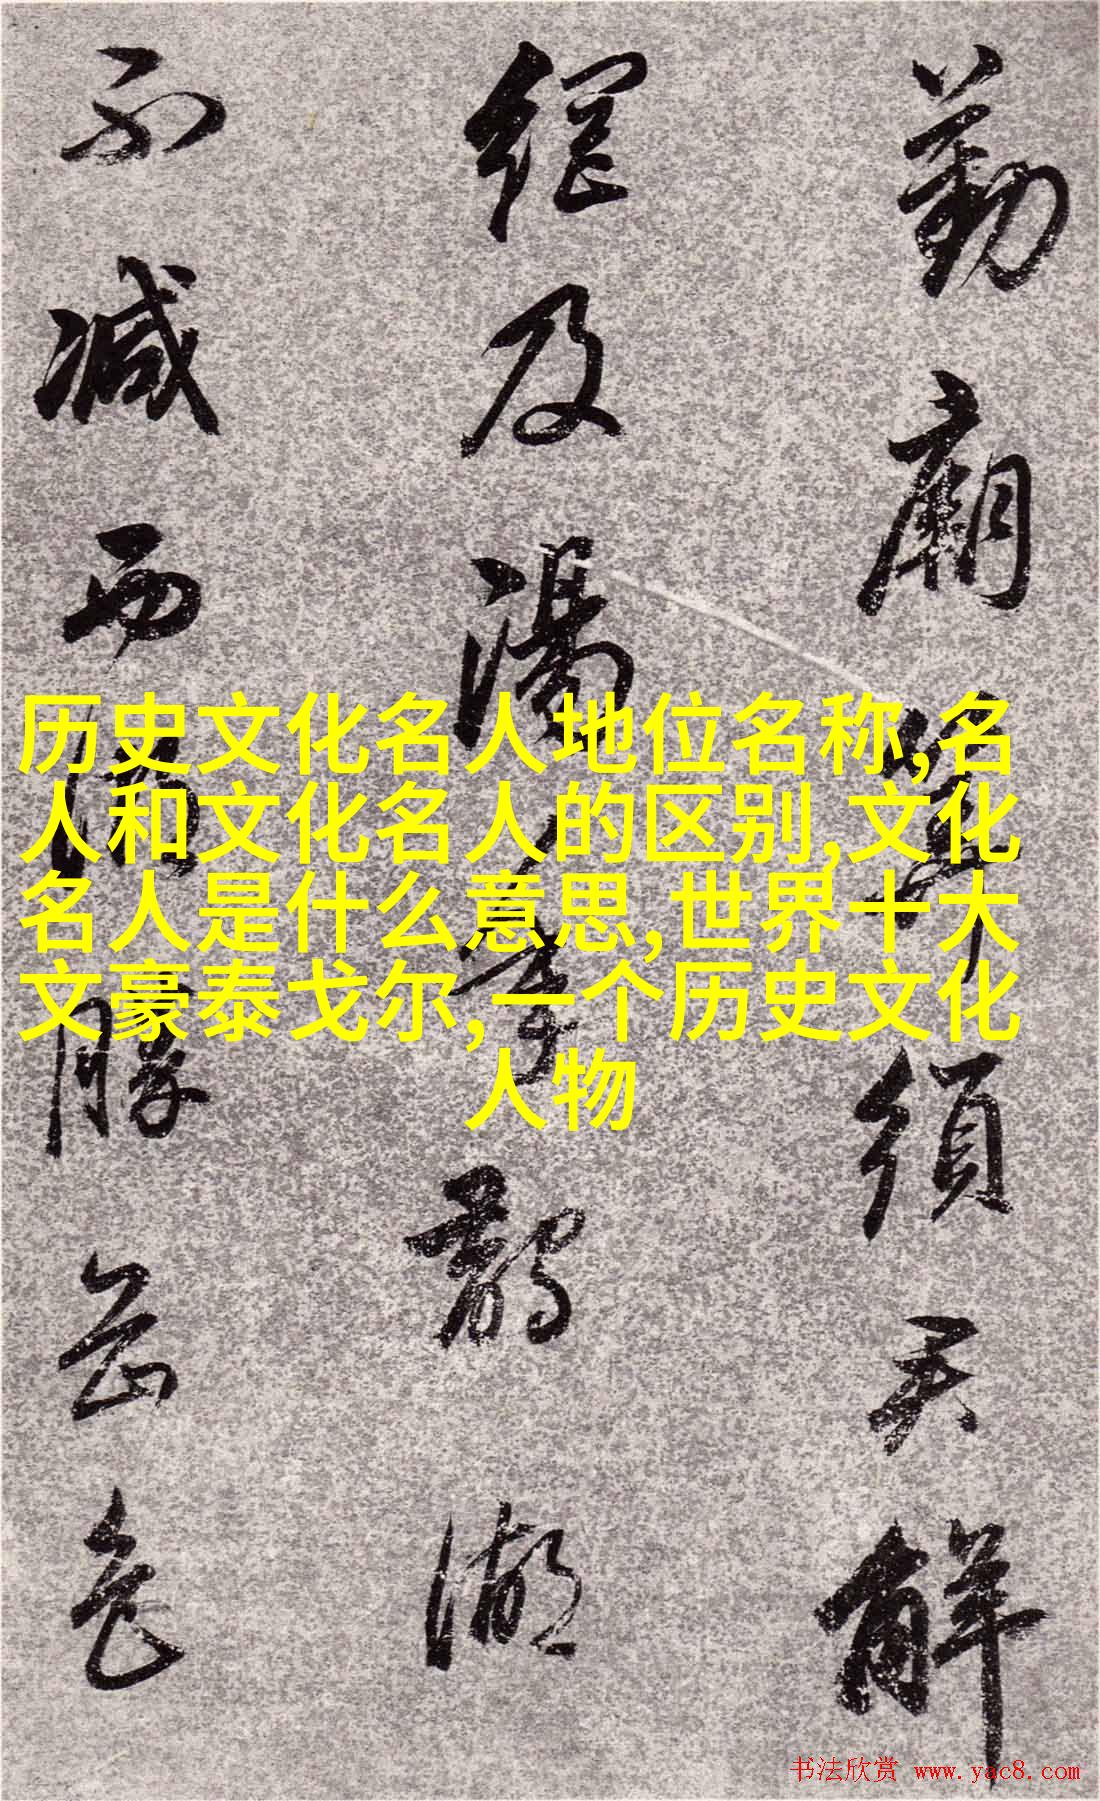 勤廟算須君解
網及潘年鵲湖
不減西湖勝茲色
历史文化名人地位名称,名
人和文化名人的区别,文化
名人是什么意思,世界十大
文豪泰戈尔,一个历史文化
人物
书法欣赏 www.yac8.com